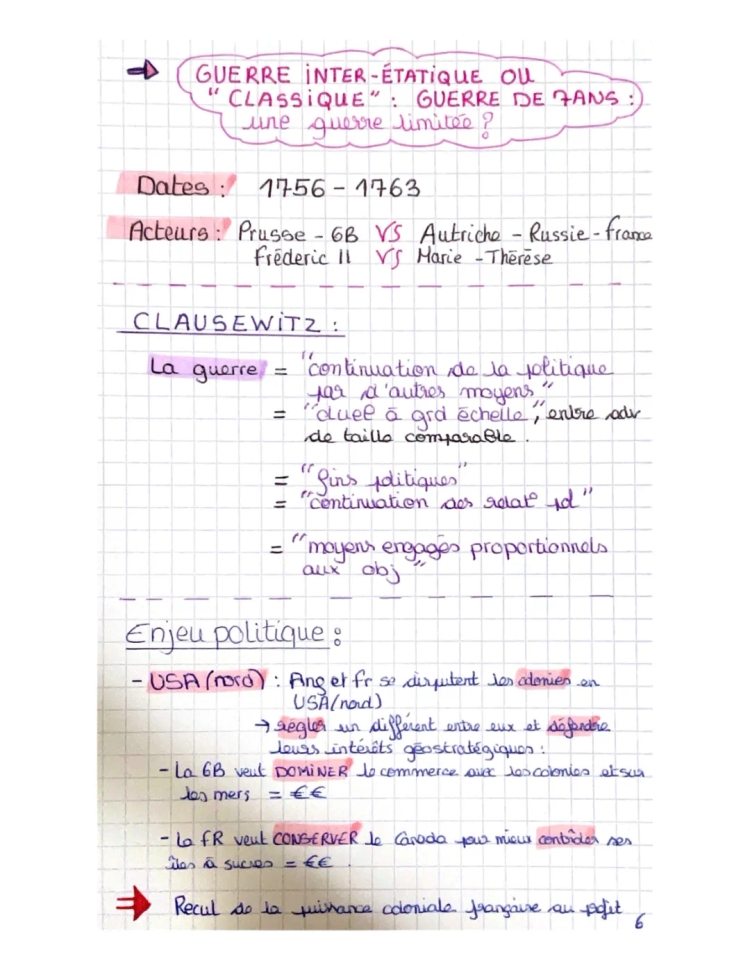 → GUERRE INTER-ÉTATIQUE OU
" CLASSIQUE" : GUERRE DE 7ANS :
une guerre limitée ?
Dates : 1756 - 1763
Acteurs : Prusse - GB VS Autriche - Russie - france
Fréderic II VS Marie - Thérèse
CLAUSEWITZ :
La guerre = "continuation de la politique
par d'autres moyens"
= "duel à grd échelle", entre adv
de taille comparable.
= "fins politiques"
= "continuation des relat° pol"
= "moyens engagés proportionnels
aux obj"
Enjeu politique :
- USA (nord) : Ang et fr se disputent les colonies en
USA (nord)
→ régler un différent entre eux et défendre
leurs intérêts géostratégiques :
- La GB veut DOMINER le commerce avec les colonies et sur
les mers = €€
- La FR veut CONSERVER le Canada pour mieux contrôler ses
îles à sucres = €€.
⇒ Recul de la puissance coloniale française au profit
6